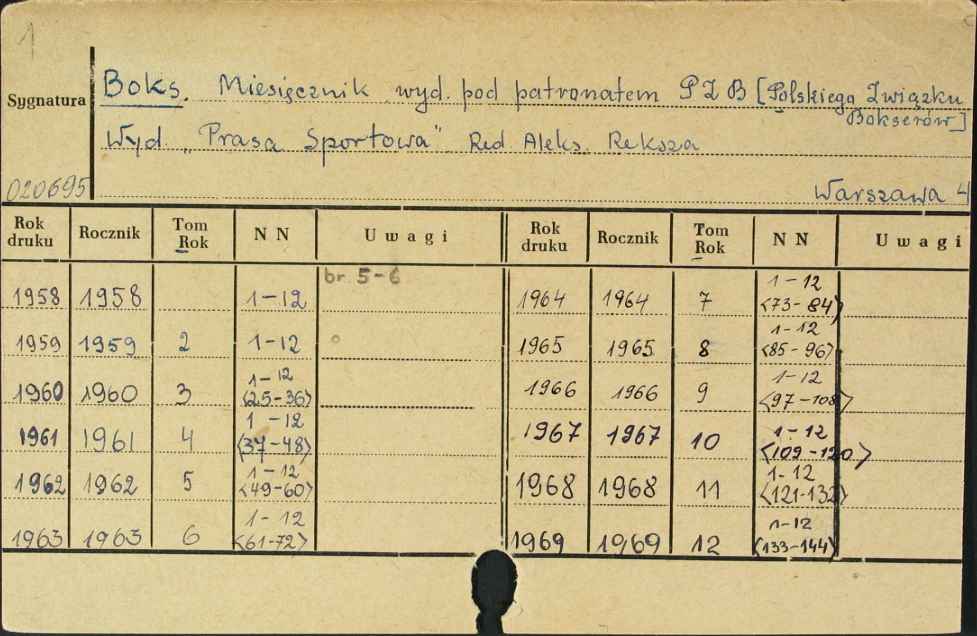 1
Sygnatura
Boks. Miesięcznik wyd. pod patronatem PZB [Polskiego Związku
Bokserów]
Wyd „Prasa Sportowa" Red Aleks. Reksza
020695
Warszawa 4
Rok druku Rocznik Tom Rok NN Uwagi Rok druku Rocznik Tom Rok NN Uwagi
br 5-6
1958 1958 1-12 1964 1964 7 1-12 <73-84>
1959 1959 2 1-12 1965 1965 8 1-12 <85-96>
1960 1960 3 1-12 <25-36> 1966 1966 9 1-12 <97-108>
1961 1961 4 1-12 <37-48> 1967 1967 10 1-12 <109-120>
1962 1962 5 1-12 <49-60> 1968 1968 11 1-12 <121-132>
1963 1963 6 1-12 <61-72> 1969 1969 12 1-12 <133-144>